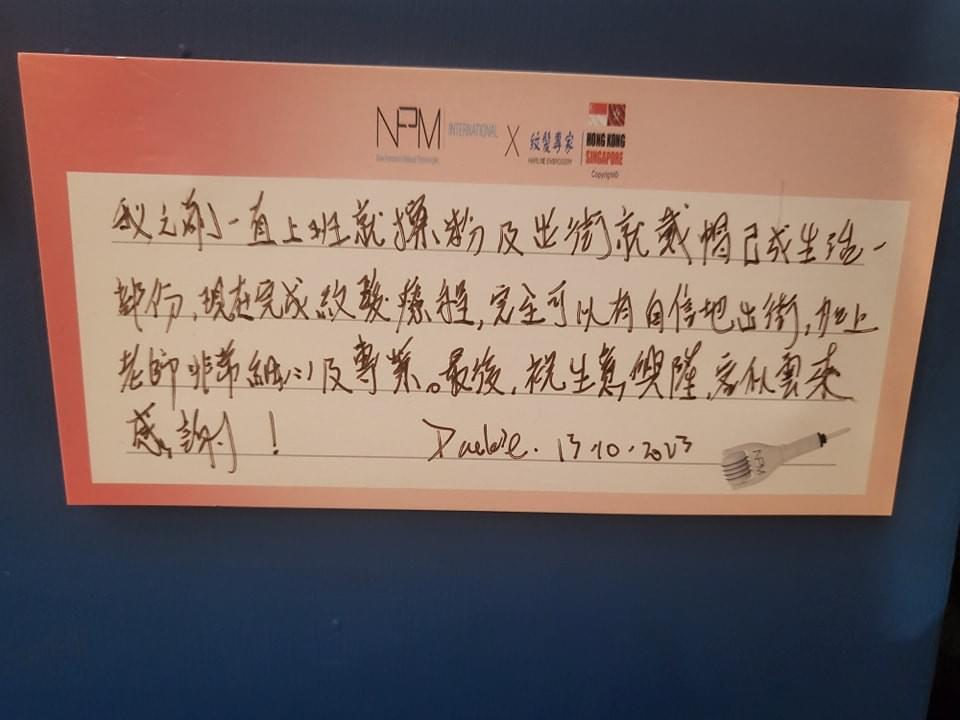 NPM INTERNATIONAL X 紋髮專家 HAIRLINE EMBROIDERY HONG KONG SINGAPORE
Copyright©
我之前一直上班就搽粉及出街就戴帽已成生活一
部份,現在完成紋髮療程,完全可以有自信地出街,加上
老師非常細心及專業。最後,祝生意興隆,客似雲來
感謝! 13-10-2023
NPM